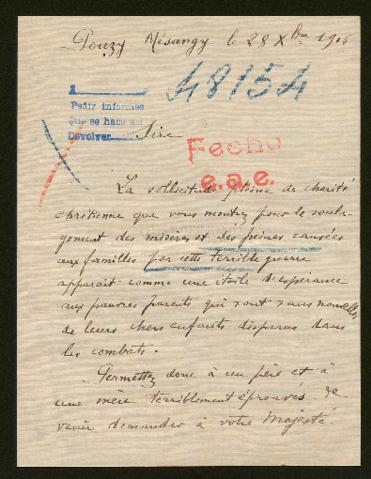 Pouzy Mésangy le 28 Xbre 1916
48154
A
Pedir informes
Que se hace así
Devolver
Sire
Fecho
e.a.e.
La sollicitude pleine de charité
chrétienne que vous montrez pour le soula-
gement des misères et des peines causées
aux familles par cette terrible guerre
apparait comme une étoile d'espérance
aux pauvres parents qui sont sans nouvelles
de leurs chers enfants disparus dans
les combats.
Permettez donc à un père et à
une mère terriblement éprouvés de
venir demander à votre Majesté